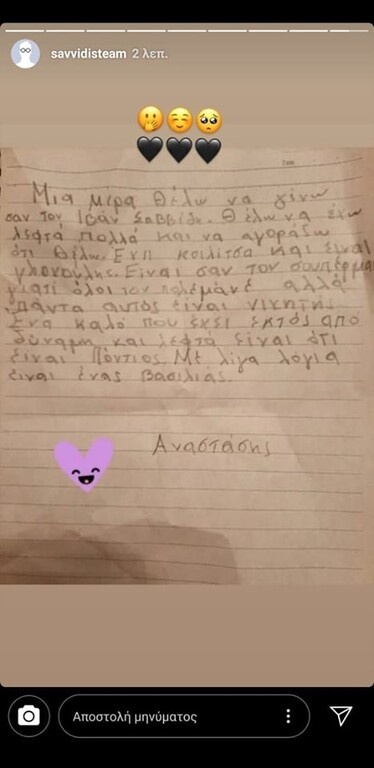 savvidisteam 2 λεπ.
Μια μέρα θέλω να γίνω
σαν τον Ιβάν Σαββίδη. Θέλω να έχω
λεφτά πολλά και να αγοράζω
ότι θέλω. Εχη κοιλίτσα και είναι
γλυκούλης. Είναι σαν τον σούπερμα
γιατί όλοι τον πολεμάνε αλλά
πάντα αυτός είναι νικητής.
Ένα καλό που έχει εκτός από
δύναμη και λεφτά είναι ότι
είναι Πόντιος. Με λίγα λόγια
είναι ένας βασιλιάς.
Αναστάσης
Αποστολή μηνύματος